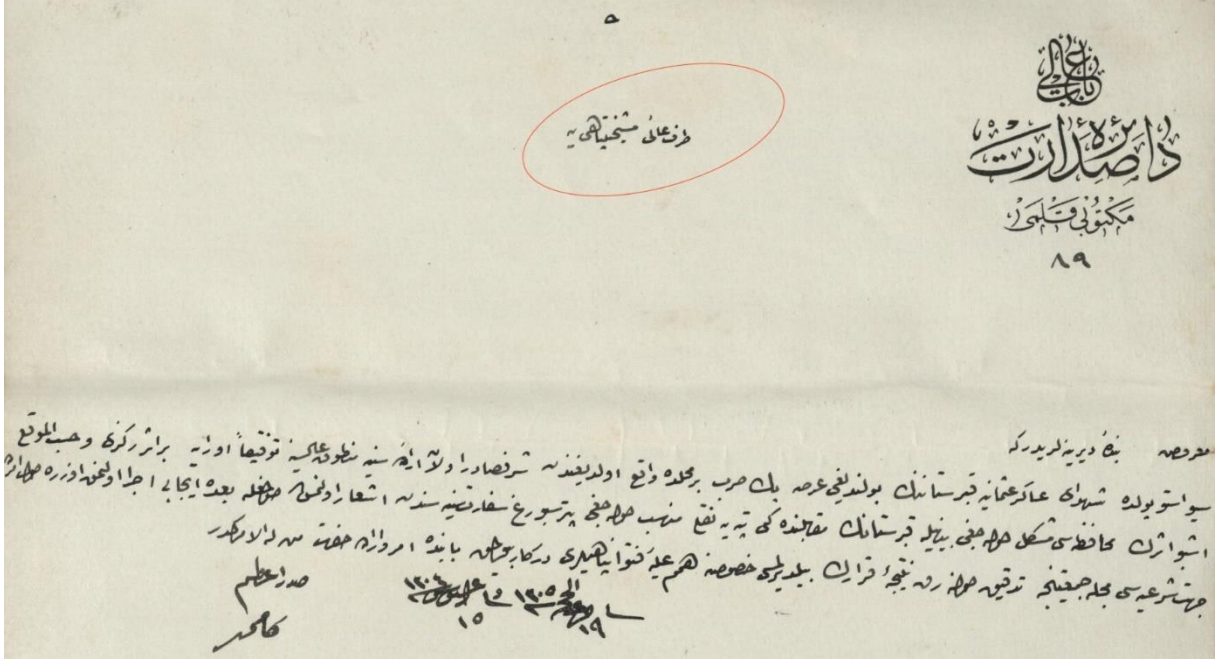 باب عالی
دائرهٔ صدارت
مکتوبی قلمی
٨٩
طرف عالئ مشیختپناهی یه
معروض بندهٔ دیرینه لریدرکه
سیواستوپولده شهدای عساکر عثمانیه قبرستاننک بولندیغی عرصه پك صرب بر محلده واقع اولدیغندن شرفصادر اولان ارادهٔ سنیه منطوق عالیسنه توفیقاً اورایه بر اثر رکزی و حسب الموقع
اشبو اثرك محافظه سی مشکل اوله جغی بیانیله قبرستانك مقابلنده کی تپه یه نقلی مناسب اوله جغی پترسبورغ سفارت سنیه سندن اشعار اولنمش اولمغله بعده ایجابی اجرا اولنمق اوزره اولا امرك
جهت شرعیه سی مجله جمعیتنجه تدقیق اولنه رق نتیجهٔ قرارك بیلدیرلمسی خصوصنه همم علیهٔ فتواپناهیلری درکار بیورلمق بابنده امر و اراده حضرت من له الامرکدر
١٣٠٥
١٩
١٥
صدر اعظم
کامل